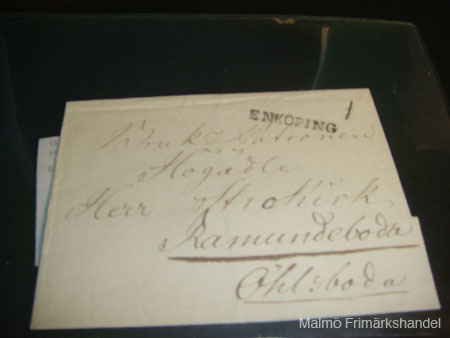 ENKÖPING 1
Bruks Patronen
Högädle
Herr Strokirk
Ramundeboda
Öhl:boda
Malmö Frimärkshandel